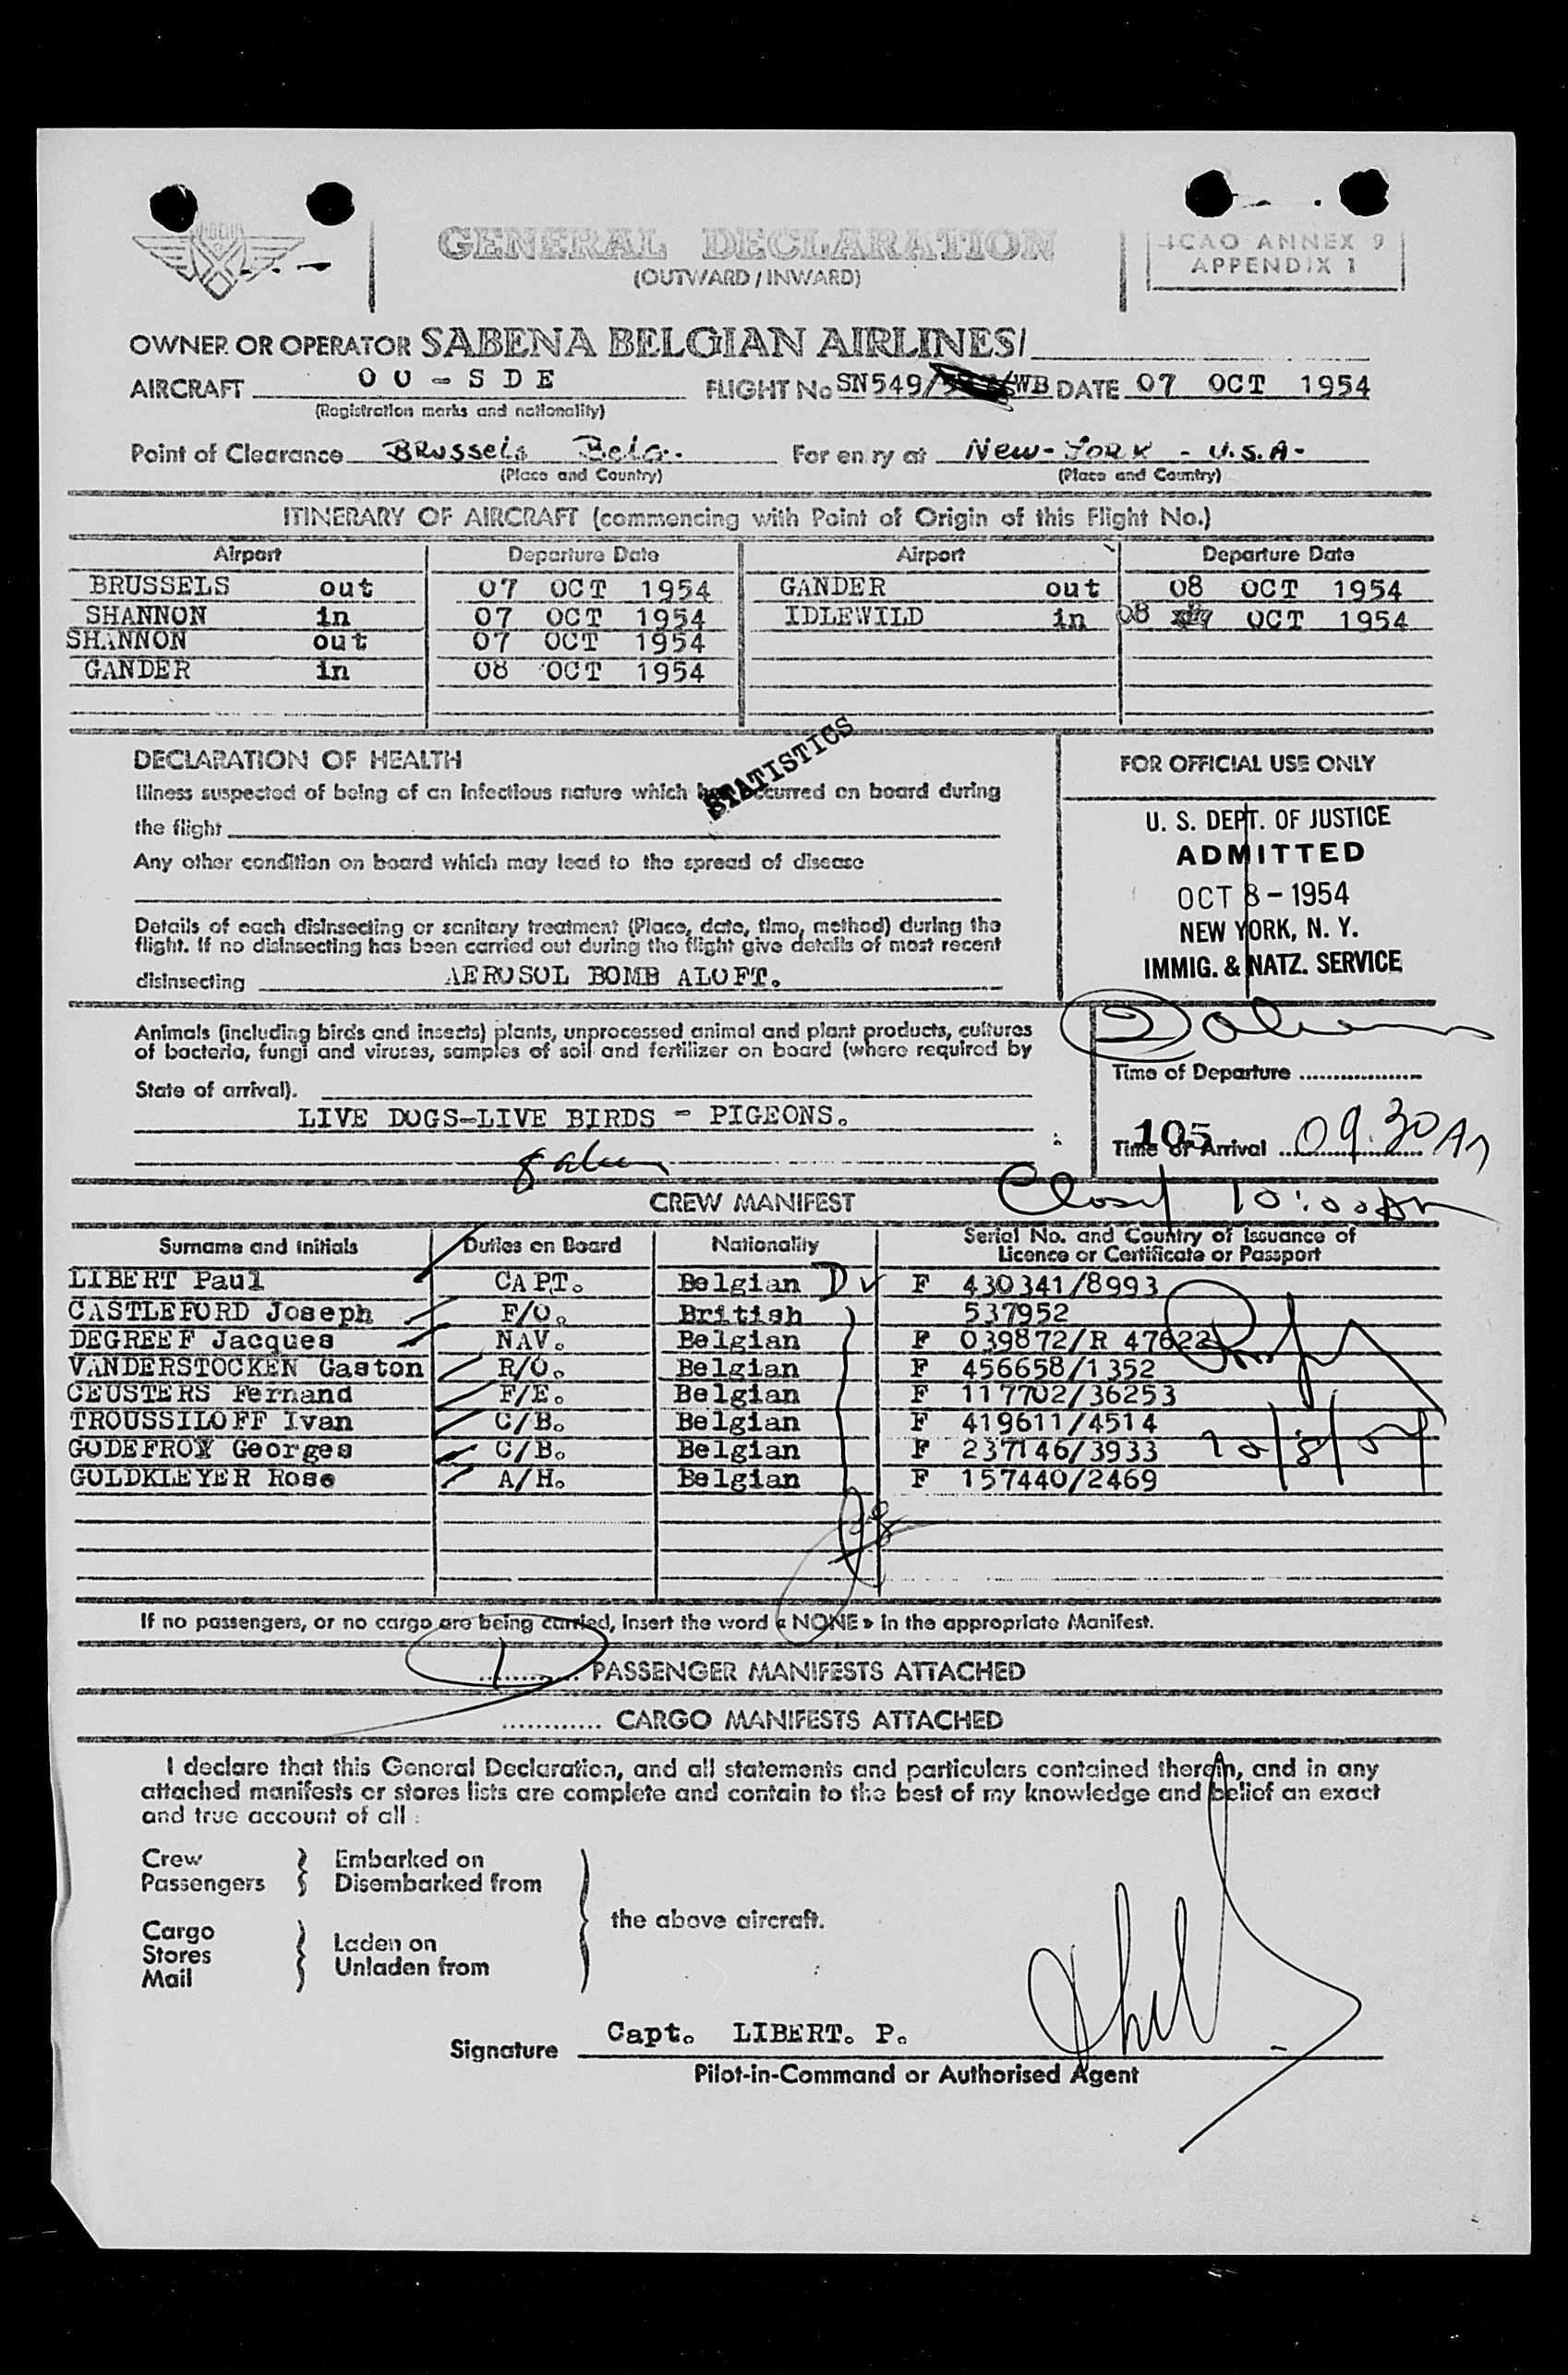 GENERAL DECLARATION
(OUTWARD / INWARD)
ICAO ANNEX 9
APPENDIX 1
OWNER OR OPERATOR SABENA BELGIAN AIRLINES/
AIRCRAFT OO-SDE FLIGHT No SN549/ /WB DATE 07 OCT 1954
(Registration marks and nationality)
Point of Clearance Brussels Belg. For entry at New-York - U.S.A-
(Place and Country) (Place and Country)
ITINERARY OF AIRCRAFT (commencing with Point of Origin of this Flight No.)
Airport Departure Date Airport Departure Date
BRUSSELS out 07 OCT 1954 GANDER out 08 OCT 1954
SHANNON in 07 OCT 1954 IDLEWILD in 08 OCT 1954
SHANNON out 07 OCT 1954
GANDER in 08 OCT 1954
STATISTICS
DECLARATION OF HEALTH
Illness suspected of being of an infectious nature which has occurred on board during
the flight
Any other condition on board which may lead to the spread of disease
Details of each disinsecting or sanitary treatment (Place, date, time, method) during the
flight. If no disinsecting has been carried out during the flight give details of most recent
disinsecting AEROSOL BOMB ALOFT.
FOR OFFICIAL USE ONLY
U. S. DEPT. OF JUSTICE
ADMITTED
OCT 8 - 1954
NEW YORK, N. Y.
IMMIG. & NATZ. SERVICE
Animals (including birds and insects) plants, unprocessed animal and plant products, cultures
of bacteria, fungi and viruses, samples of soil and fertilizer on board (where required by
State of arrival).
LIVE DOGS-LIVE BIRDS - PIGEONS.
Time of Departure
105
Time of Arrival 09.30 AM
Closed 10:00 AM
CREW MANIFEST
Surname and Initials Duties on Board Nationality Serial No. and Country of Issuance of
Licence or Certificate or Passport
LIBERT Paul CAPT. Belgian D F 430341/8993
CASTLEFORD Joseph F/O. British 537952
DEGREEF Jacques NAV. Belgian F 039872/R 47622
VANDERSTOCKEN Gaston R/O. Belgian F 456658/1352
CEUSTERS Fernand F/E. Belgian F 117702/36253
TROUSSILOFF Ivan C/B. Belgian F 419611/4514
GODEFROY Georges C/B. Belgian F 237146/3933
GOLDKLEYER Rose A/H. Belgian F 157440/2469
10/8/54
If no passengers, or no cargo are being carried, insert the word « NONE » in the appropriate Manifest.
1 PASSENGER MANIFESTS ATTACHED
............ CARGO MANIFESTS ATTACHED
I declare that this General Declaration, and all statements and particulars contained therein, and in any
attached manifests or stores lists are complete and contain to the best of my knowledge and belief an exact
and true account of all :
Crew Embarked on
Passengers Disembarked from
the above aircraft.
Cargo
Stores Laden on
Mail Unladen from
Capt. LIBERT. P.
Signature
Pilot-in-Command or Authorised Agent